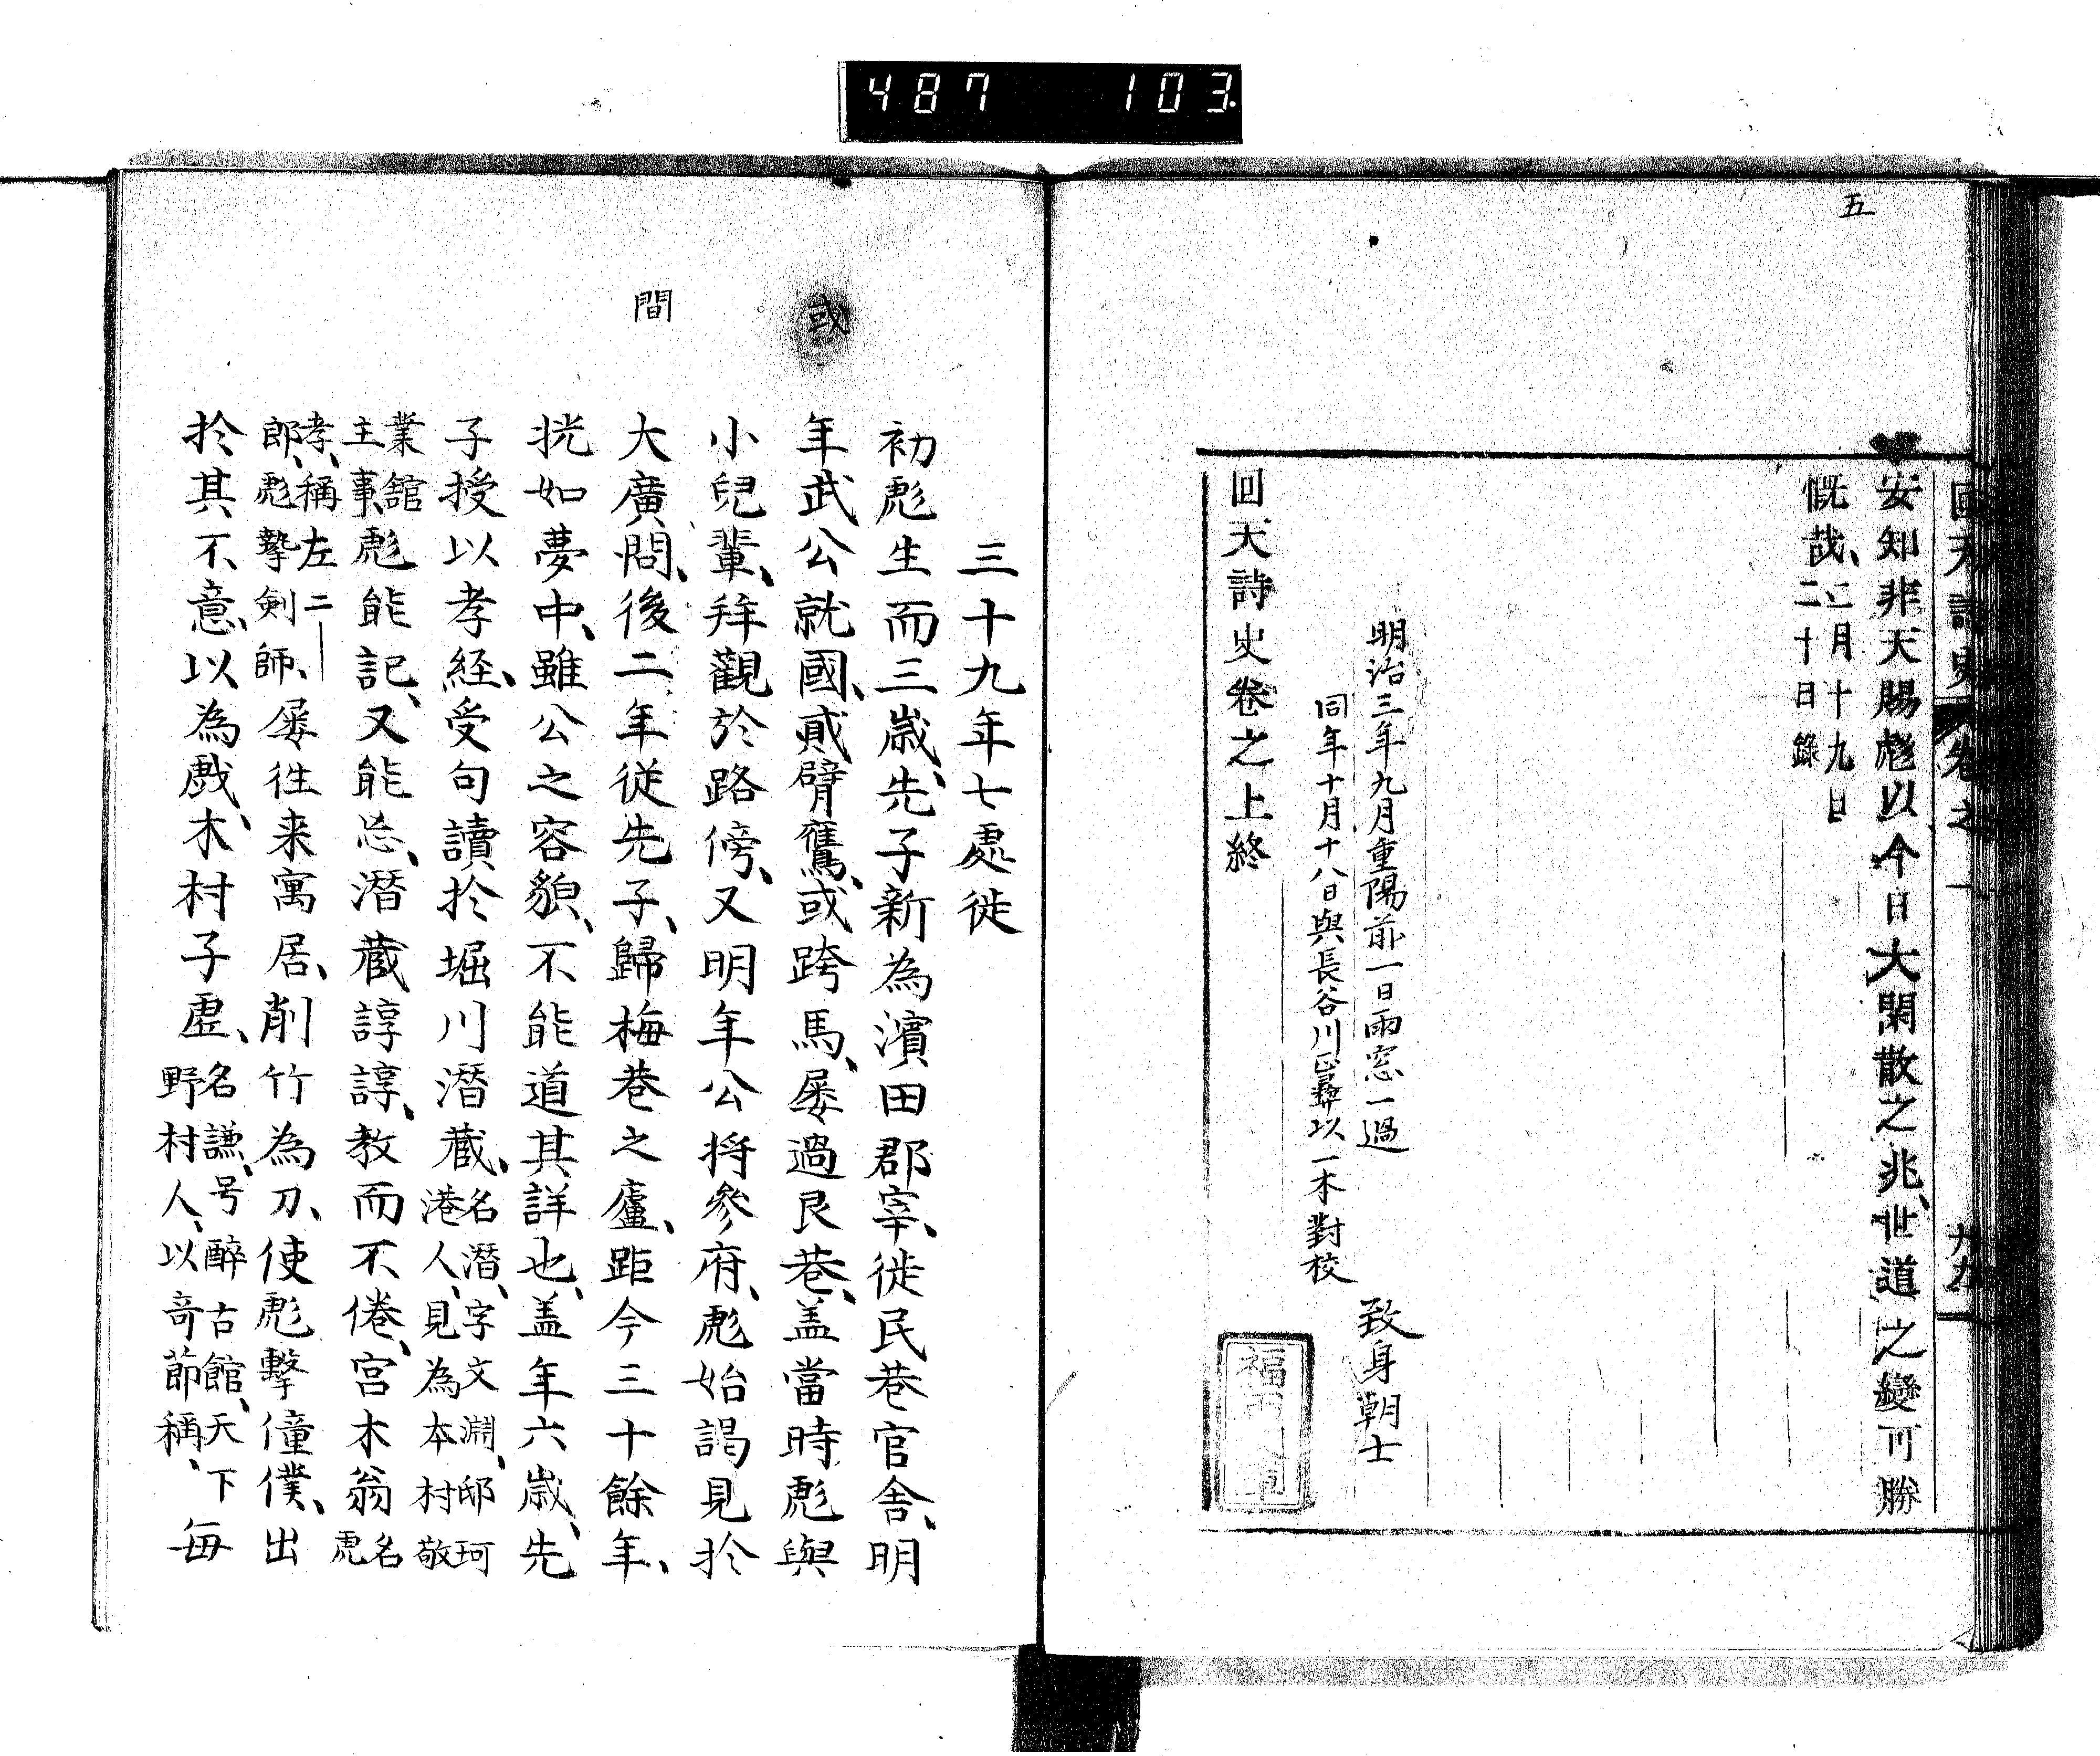 487 103
五
回天詩史 卷之上 廿九
安知非天賜彪以今日大閑散之兆、世道之變可勝
慨哉、二月十九日
二十日錄
明治三年九月重陽前一日雨窓一過
致身朝士
同年十月十八日與長谷川正彝以一本對校
回天詩史卷之上終
三十九年七處徙
初彪生而三歳、先子新為濱田郡宰、徙民巷官舎、明
或
年武公就國、貮臂鷹、或跨馬、屡過艮巷、盖當時彪與
小兒輩、拜觀於路傍、又明年公将參府、彪始謁見於
間
大廣問、後二年従先子、歸梅巷之廬、距今三十餘年、
恍如夢中、雖公之容貌、不能道其詳也、盖年六歳、先
子授以孝経、受句讀於堀川潛蔵、名潛、字文淵、邸珂
港人、見為本村敬
業舘
主事、彪能記、又能忘、潛蔵諄諄、教而不倦、宮木翁名
虎
孝、稱左二
郎、彪擊剣師、屡往来寓居、削竹為刀、使彪擊僮僕、出
於其不意、以為戲、木村子虚、名謙、号醉古館、天下
野村人、以奇節稱、每